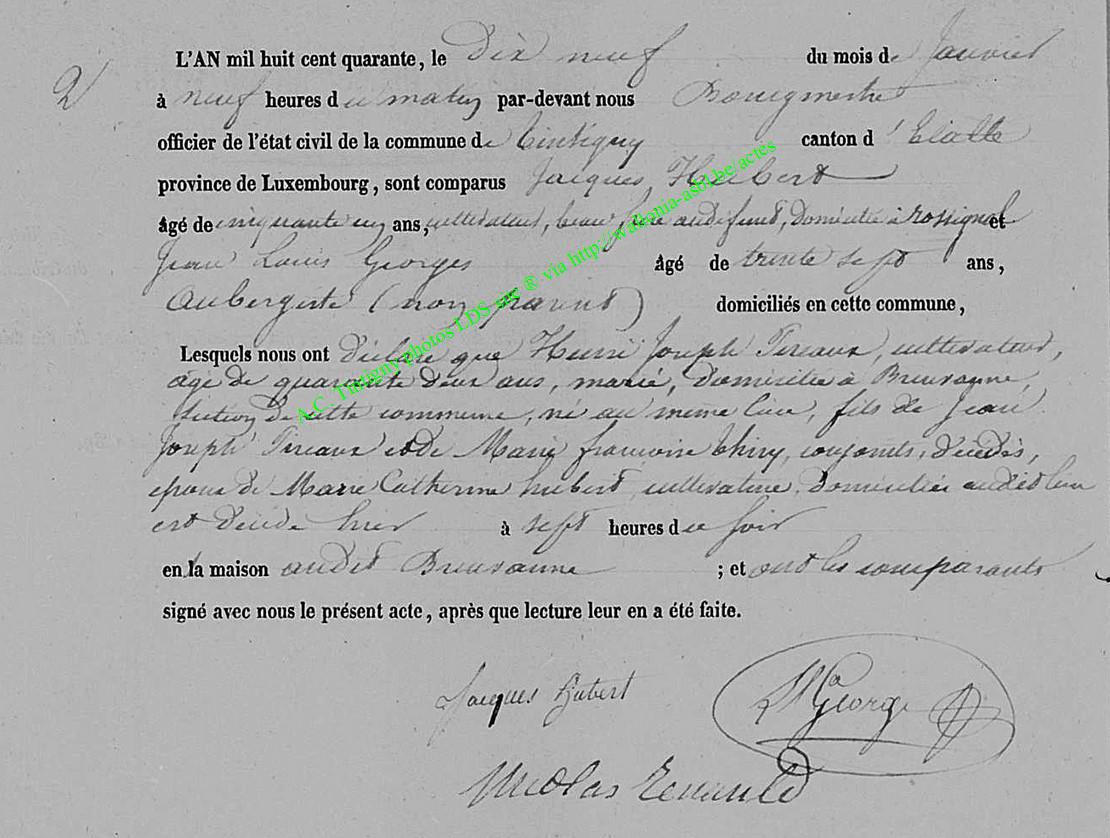 2/
L'AN mil huit cent quarante, le Dix neuf du mois de Janvier
à neuf heures du matin par-devant nous Bourgmestre
officier de l'état civil de la commune de Tintigny canton d'Etalle
province de Luxembourg, sont comparus Jacques Hubert
âgé de cinquante un ans, cultivateur, beau frere au défunt, domicilié à rossignol et
Jean Louis Georges âgé de trente sept ans,
aubergiste (non parent) domiciliés en cette commune,
Lesquels nous ont déclaré que Henri Joseph Tireaux, cultivateur,
agé de quarante deux ans, marié, domicilié à Breuvanne,
section de cette commune, né au même lieu, fils de Jean
Joseph Tireaux et de Marie francoise thiry, conjoints, décédés,
epoux de Marie Catherine hubert cultivatrice, domiciliée audit lieu
est décédé hier à sept heures du soir
en la maison audit Breuvanne ; et ont les comparants
signé avec nous le présent acte, après que lecture leur en a été faite.
Jacques hubert
George
Nicolas
A.C. Tintigny photos LDS via ® via http://wallonia-asbl.be/actes